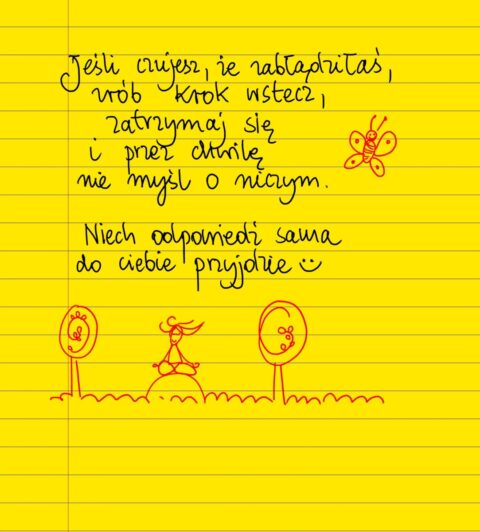 Jeśli czujesz, że zabłądziłaś,
zrób krok wstecz,
zatrzymaj się
i przez chwilę
nie myśl o niczym.
Niech odpowiedź sama
do ciebie przyjdzie